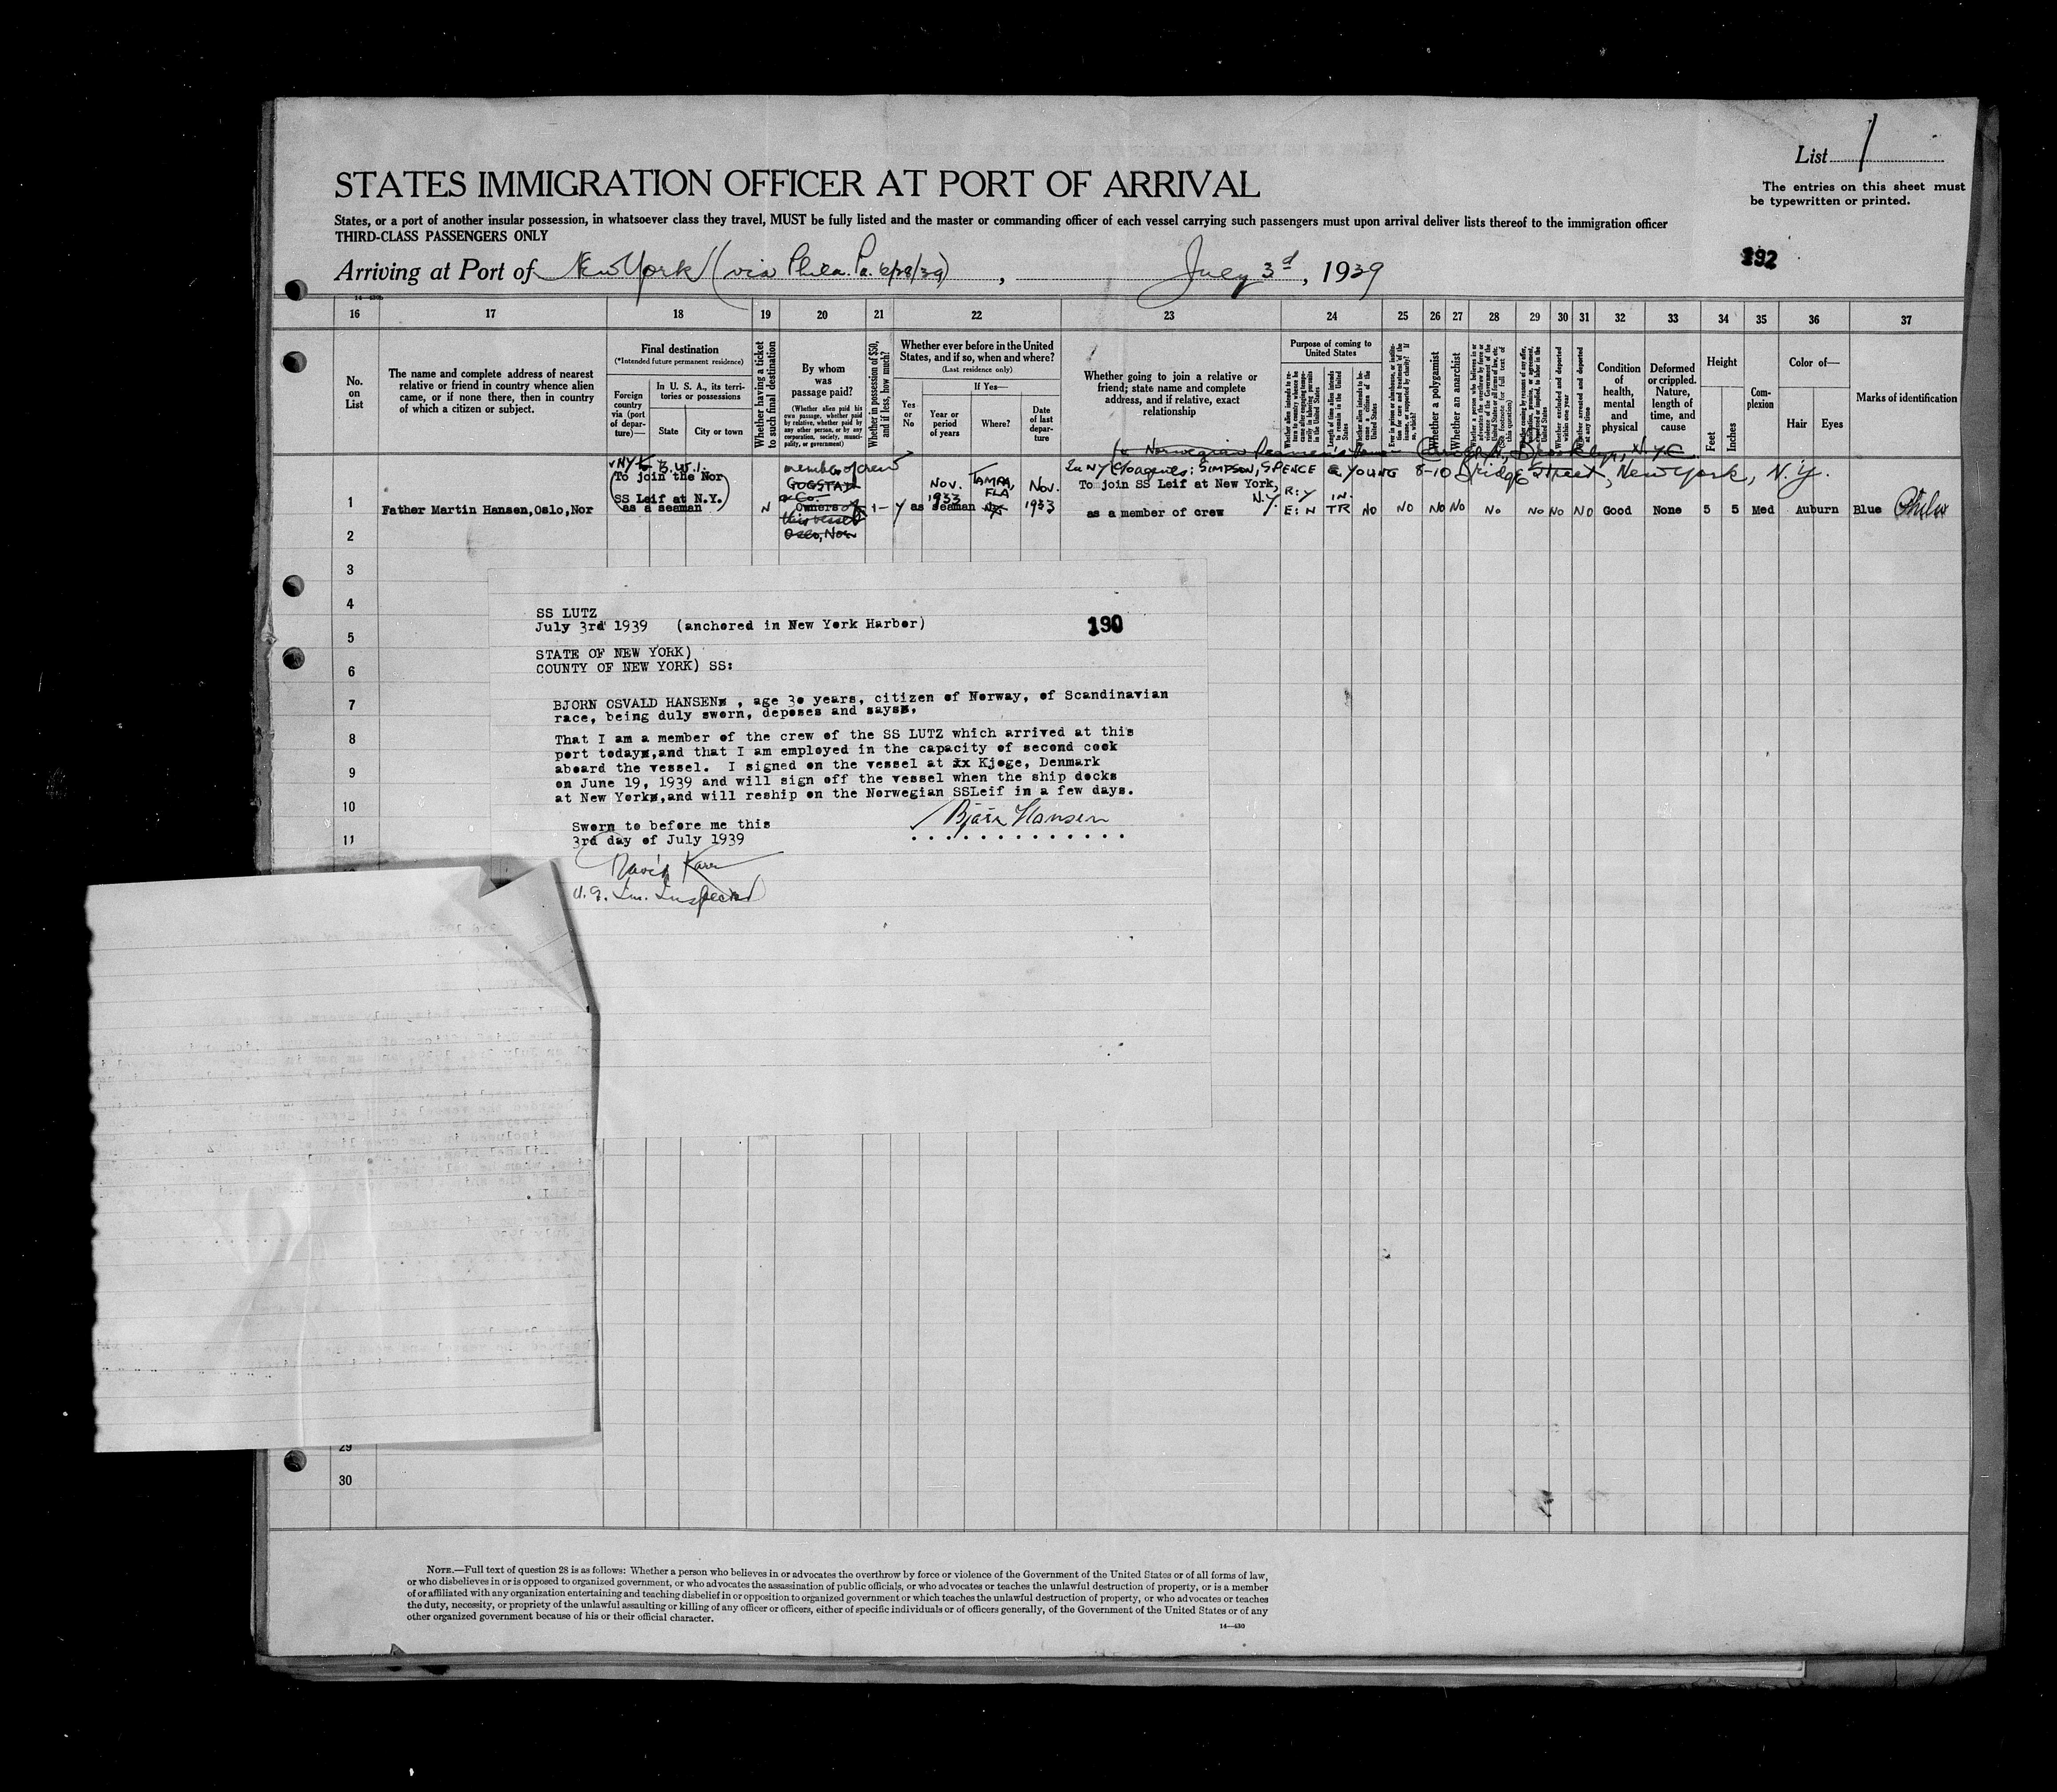 List 1
The entries on this sheet must
be typewritten or printed.
STATES IMMIGRATION OFFICER AT PORT OF ARRIVAL
States, or a port of another insular possession, in whatsoever class they travel, MUST be fully listed and the master or commanding officer of each vessel carrying such passengers must upon arrival deliver lists thereof to the immigration officer
THIRD-CLASS PASSENGERS ONLY
192
Arriving at Port of New York (via Phila. Pa. 6/28/39), July 3d, 1939
16 17 18 19 20 21 22 23 24 25 26 27 28 29 30 31 32 33 34 35 36 37
No.
on
List
The name and complete address of nearest
relative or friend in country whence alien
came, or if none there, then in country
of which a citizen or subject.
Final destination
(*Intended future permanent residence)
Foreign
country
via (port
of depar-
ture)—
In U. S. A., its terri-
tories or possessions
State
City or town
Whether having a ticket
to such final destination
By whom
was
passage paid?
(Whether alien paid his
own passage, whether paid
by relative, whether paid by
any other person, or by any
corporation, society, munici-
pality, or government)
Whether in possession of $50,
and if less, how much?
Whether ever before in the United
States, and if so, when and where?
(Last residence only)
Yes
or
No
If Yes—
Year or
period
of years
Where?
Date
of last
depar-
ture
Whether going to join a relative or
friend; state name and complete
address, and if relative, exact
relationship
Purpose of coming to
United States
Length of time alien intends
to remain in the United
States
Whether a polygamist
Whether an anarchist
Whether excluded and deported
within one year
Whether arrested and deported
at any time
Condition
of
health,
mental
and
physical
Deformed
or crippled.
Nature,
length of
time, and
cause
Height
Feet
Inches
Com-
plexion
Color of—
Hair
Eyes
Marks of identification
To join the Nor
SS Leif at N.Y.
as a seaman
member of crew
GOGSTAD
& Co.
Owners of
this vessel
Oslo, Nor
In NY c/o agents: SIMPSON, SPENCE & YOUNG 8-10 Bridge Street, New York, N.Y.
1 Father Martin Hansen,Oslo,Nor
N
Y as seaman
Nov.
1933
TAMPA,
FLA
Nov.
1933
To join SS Leif at New York,
N.Y.
as a member of crew
R: Y
E: N
IN
TR
NO NO NO NO No No No NO Good None 5 5 Med Auburn Blue
2
3
4
5
6
7
8
9
10
11
SS LUTZ
July 3rd 1939 (anchored in New York Harbor)
190
STATE OF NEW YORK)
COUNTY OF NEW YORK) SS:
BJORN OSVALD HANSEN , age 30 years, citizen of Norway, of Scandinavian
race, being duly sworn, deposes and says,
That I am a member of the crew of the SS LUTZ which arrived at this
port today,and that I am employed in the capacity of second cook
aboard the vessel. I signed on the vessel at xx Kjoge, Denmark
on June 19, 1939 and will sign off the vessel when the ship docks
at New York,and will reship on the Norwegian SSLeif in a few days.
Bjørn Hansen
Sworn to before me this
3rd day of July 1939
David Karr
U.S. Im. Inspector
29
30
NOTE.—Full text of question 28 is as follows: Whether a person who believes in or advocates the overthrow by force or violence of the Government of the United States or of all forms of law,
or who disbelieves in or is opposed to organized government, or who advocates the assassination of public officials, or who advocates or teaches the unlawful destruction of property, or is a member
of or affiliated with any organization entertaining and teaching disbelief in or opposition to organized government or which teaches the unlawful destruction of property, or who advocates or teaches
the duty, necessity, or propriety of the unlawful assaulting or killing of any officer or officers, either of specific individuals or of officers generally, of the Government of the United States or of any
other organized government because of his or their official character.
14—430